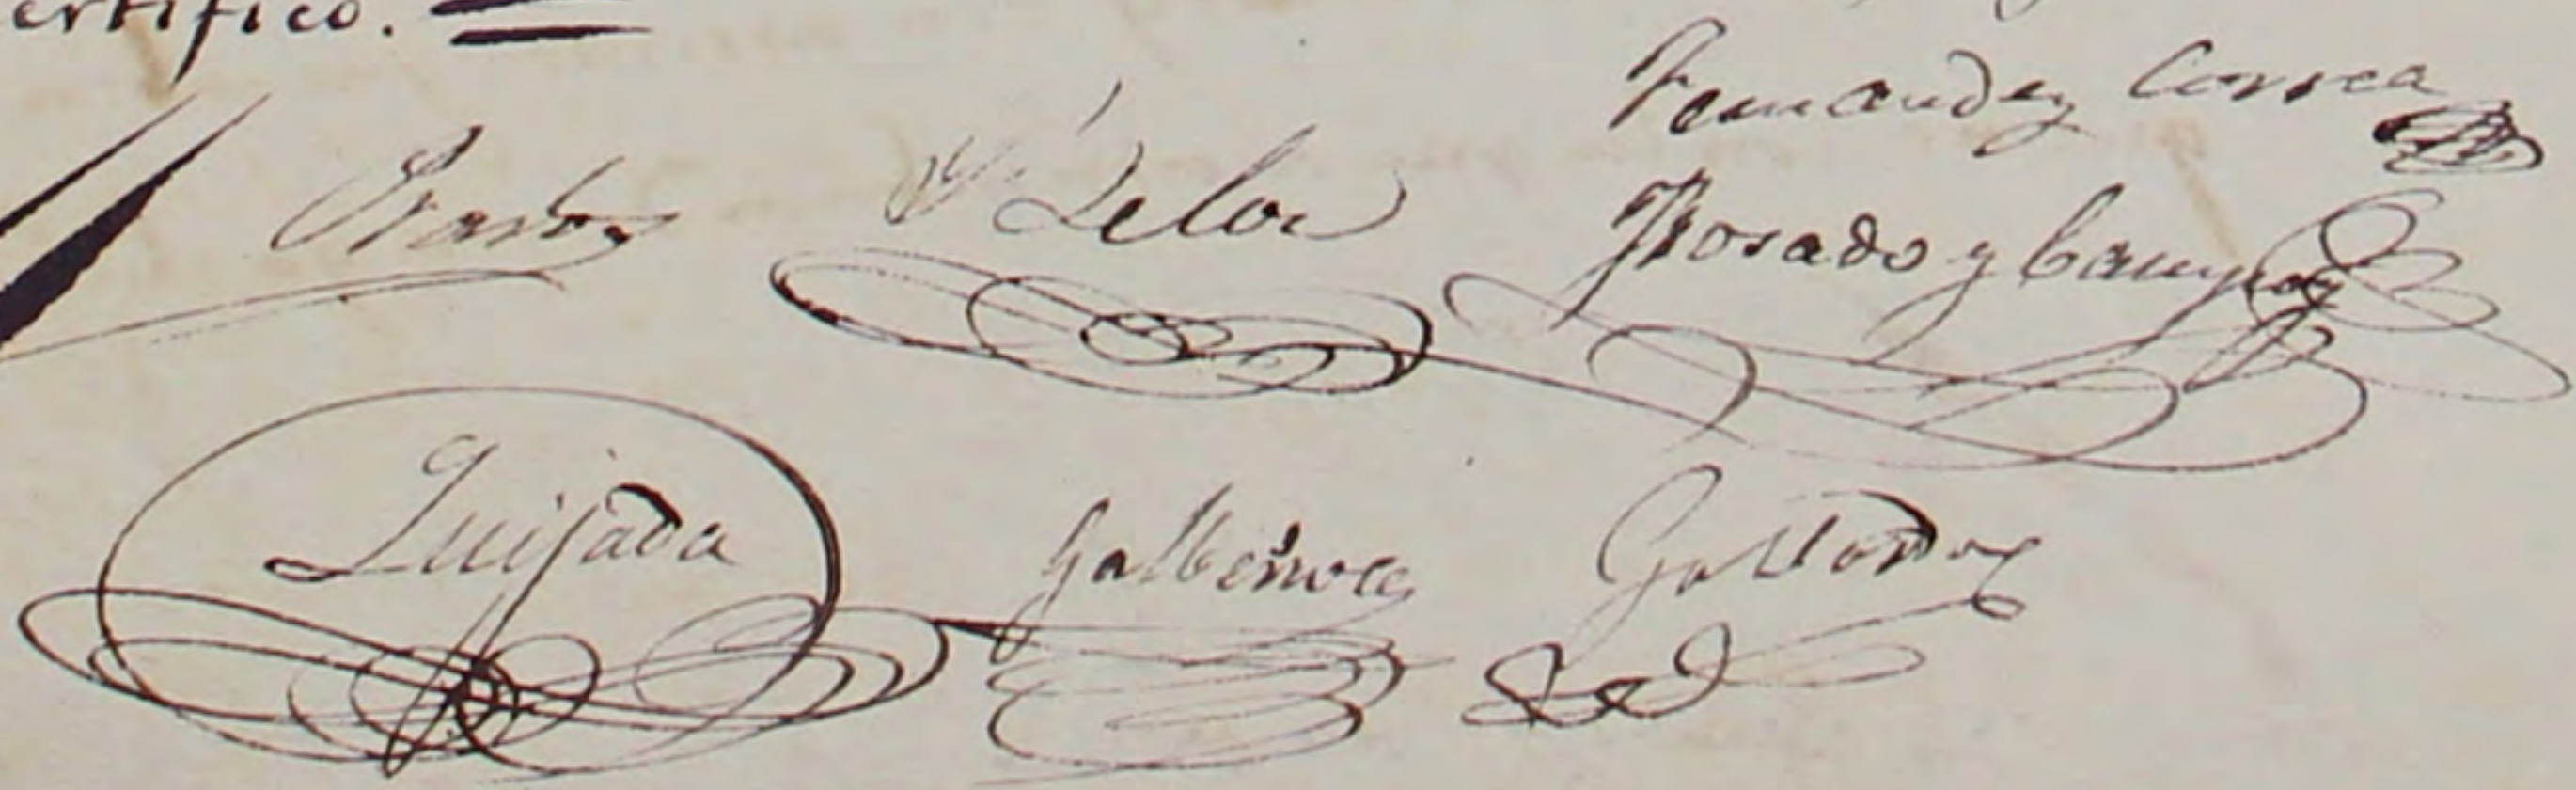 ertifico.
Fernandez Correa
Velor
Rosado y Campos
Quijada Galbeño Gallardo